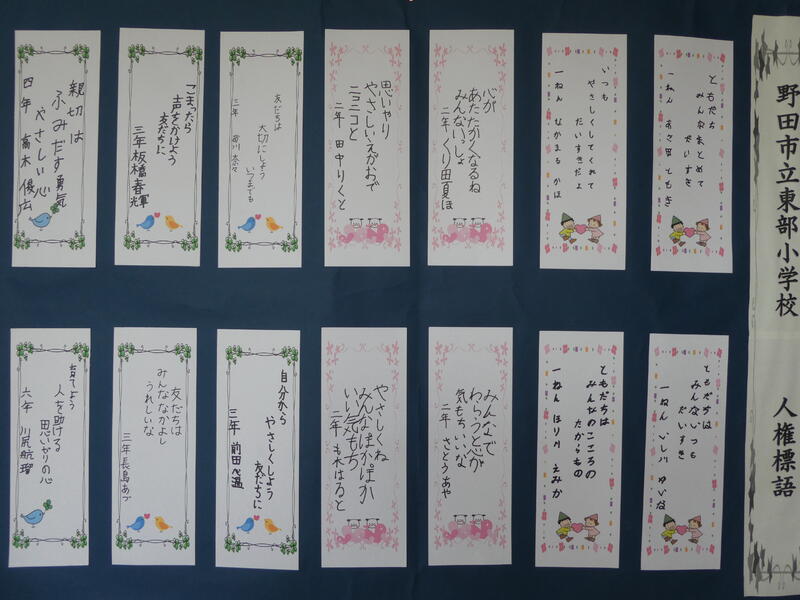 野田市立東部小学校　人権標語
ともだち
みんなまとめて
だいすき
一ねん
ともき
いつも
やさしくしてくれて
だいすきだよ
一ねん　なかまる　かほ
心が
あたたかくなるね
みんないっしょ
二年　くり田夏ほ
思いやり
やさしいえがおで
ニコニコと
二年　田中りくと
友だちは
大切にしよう
いつまでも
三年
こまったら
声をかけよう
友だちに
三年　板橋春輝
親切は
ふみだす勇気
やさしい心
四年　高木　俊広
ともだちは
みんないつも
だいすき
一ねん　いし川　ゆいな
ともだちは
みんなのこころの
たからもの
一ねん　ほり川　えみか
みんなで
わらうと心が
気もちいいな
二年　さとうあや
やさしくね
みんなぽかぽか
いい気もち
二年　も木はると
自分から
やさしくしよう
友だちに
三年　前田
友だちは
みんななかよし
うれしいな
三年　長島あづ
育てよう
人を助ける
思いやりの心
六年　川尻航瑠